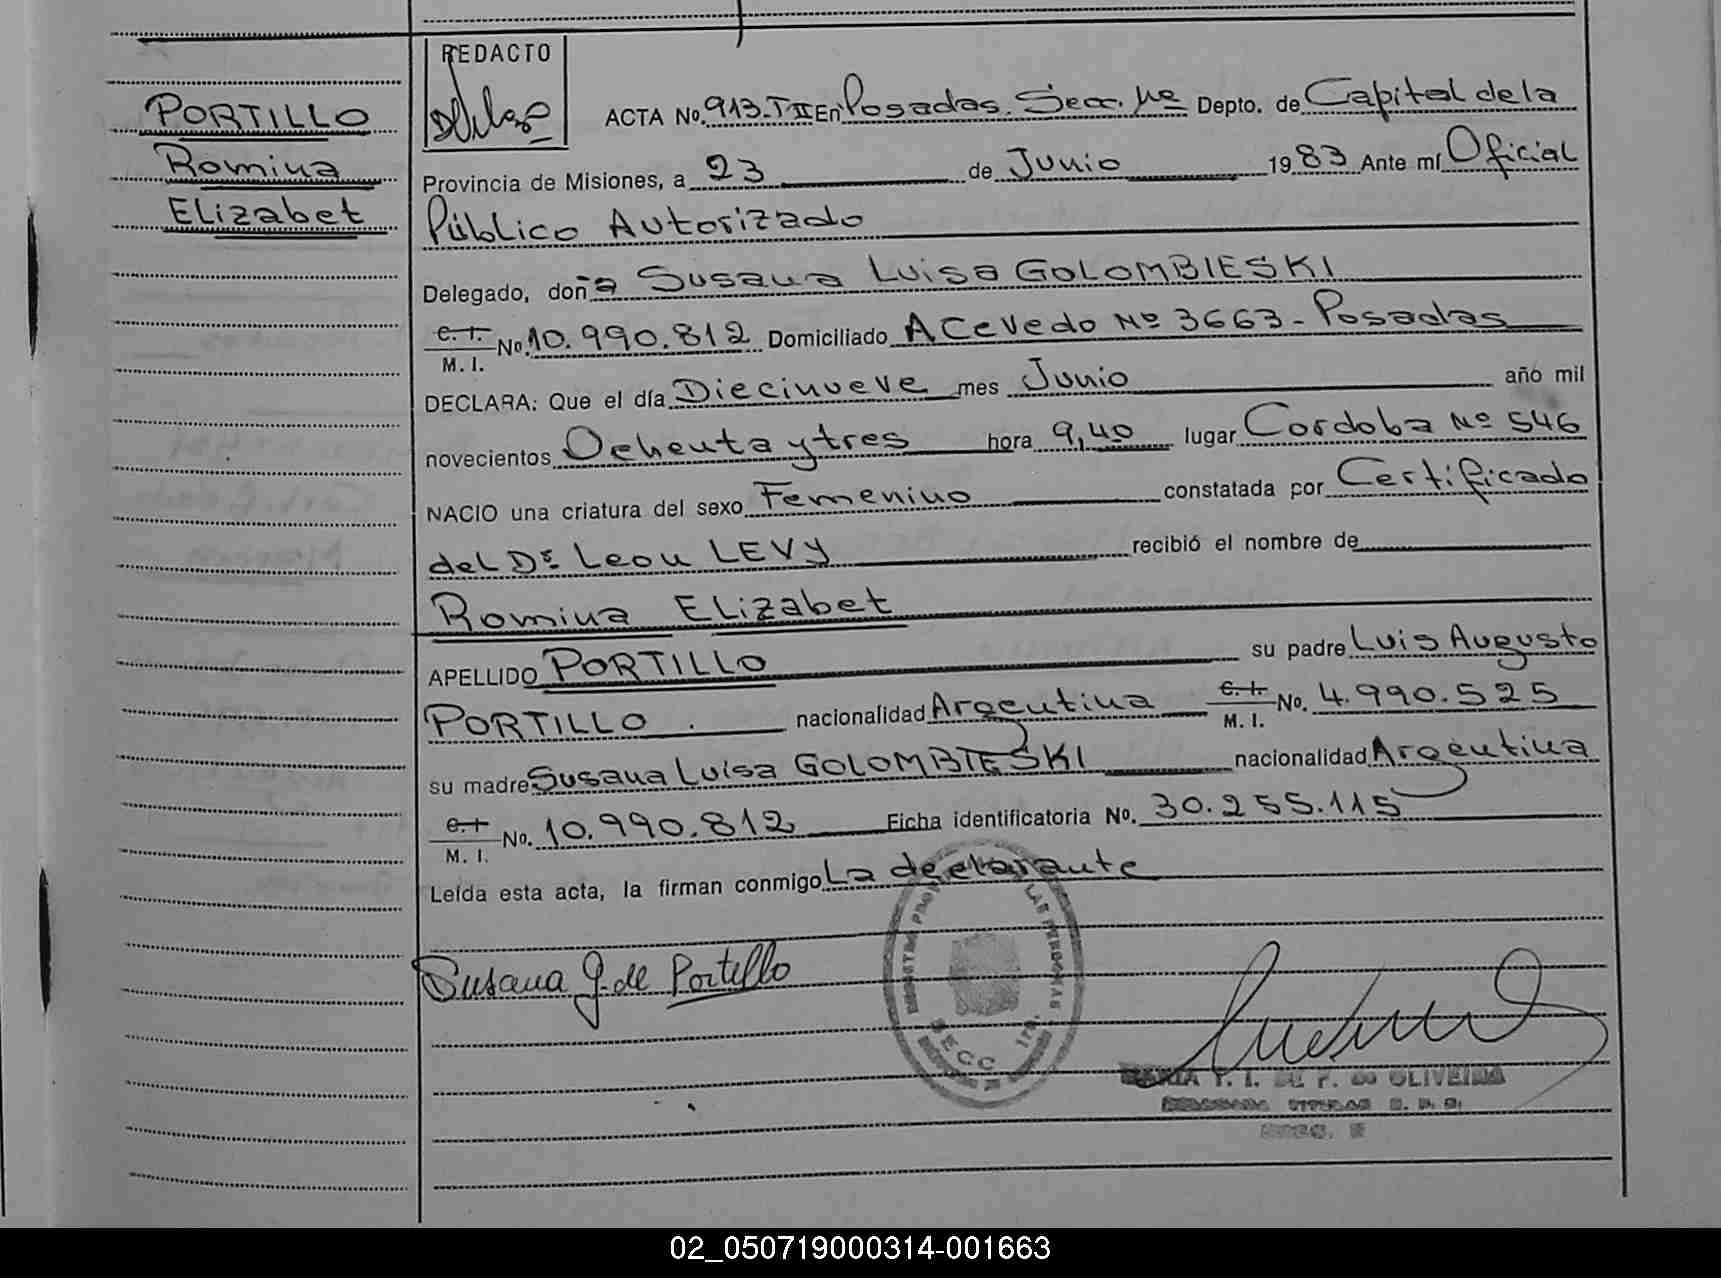 PORTILLO
Romina
Elizabet
REDACTO
ACTA No. 913-T II En Posadas. Secc. 1ª Depto. de Capital de la
Provincia de Misiones, a 23 de Junio 1983 Ante mí Oficial
Público Autorizado
Delegado, doña Susana Luisa GOLOMBIESKI
C. I.
M. I. No. 10.990.812 Domiciliado Acevedo Nº 3663 - Posadas
DECLARA: Que el día Diecinueve mes Junio año mil
novecientos Ochenta y tres hora 9,40 lugar Cordoba Nº 546
NACIO una criatura del sexo Femenino constatada por Certificado
del Dr. Leon LEVY recibió el nombre de
Romina Elizabet
APELLIDO PORTILLO su padre Luis Augusto
PORTILLO. nacionalidad Argentina C. I. M. I. No. 4.990.525
su madre Susana Luisa GOLOMBIESKI nacionalidad Argentina
C. I.
M. I. No. 10.990.812 Ficha identificatoria No. 30.255.115
Leída esta acta, la firman conmigo La declarante
Susana G. de Portillo
LAS PERSONAS
SECC. 1ra.
MARIA T. I. DE P. de OLIVEIRA
02_050719000314-001663